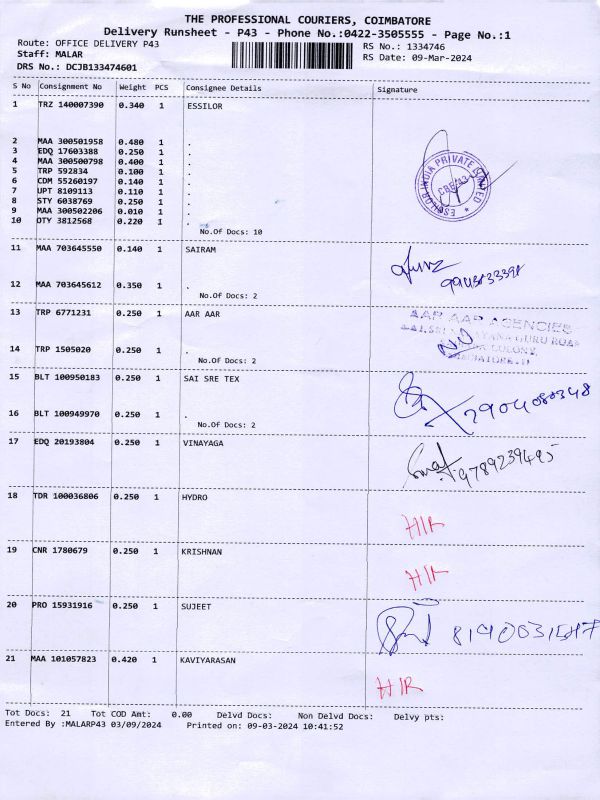 THE PROFESSIONAL COURIERS, COIMBATORE
Delivery Runsheet - P43 - Phone No.:0422-3505555 - Page No.:1
Route: OFFICE DELIVERY P43 RS No.: 1334746
Staff: MALAR RS Date: 09-Mar-2024
DRS No.: DCJB133474601
S No Consignment No Weight PCS Consignee Details Signature
1 TRZ 140007390 0.340 1 ESSILOR
2 MAA 300501958 0.480 1 .
3 EDQ 17603388 0.250 1 .
4 MAA 300500798 0.400 1 .
5 TRP 592834 0.100 1 .
6 CDM 55260197 0.140 1 .
7 UPT 8109113 0.110 1 .
8 STY 6038769 0.250 1 .
9 MAA 300502206 0.010 1 .
10 OTY 3812568 0.220 1 .
No.Of Docs: 10
ESSILOR INDIA PRIVATE LIMITED
11 MAA 703645550 0.140 1 SAIRAM
12 MAA 703645612 0.350 1 .
No.Of Docs: 2
13 TRP 6771231 0.250 1 AAR AAR
AAR AAR AGENCIES
GURU ROAD
COLONY,
14 TRP 1505020 0.250 1 .
No.Of Docs: 2
15 BLT 100950183 0.250 1 SAI SRE TEX
7904080348
16 BLT 100949970 0.250 1 .
No.Of Docs: 2
17 EDQ 20193804 0.250 1 VINAYAGA
9789239495
18 TDR 100036806 0.250 1 HYDRO
HIR
19 CNR 1780679 0.250 1 KRISHNAN
HIR
20 PRO 15931916 0.250 1 SUJEET
21 MAA 101057823 0.420 1 KAVIYARASAN
HIR
Tot Docs: 21 Tot COD Amt: 0.00 Delvd Docs: Non Delvd Docs: Delvy pts:
Entered By :MALARP43 03/09/2024 Printed on: 09-03-2024 10:41:52